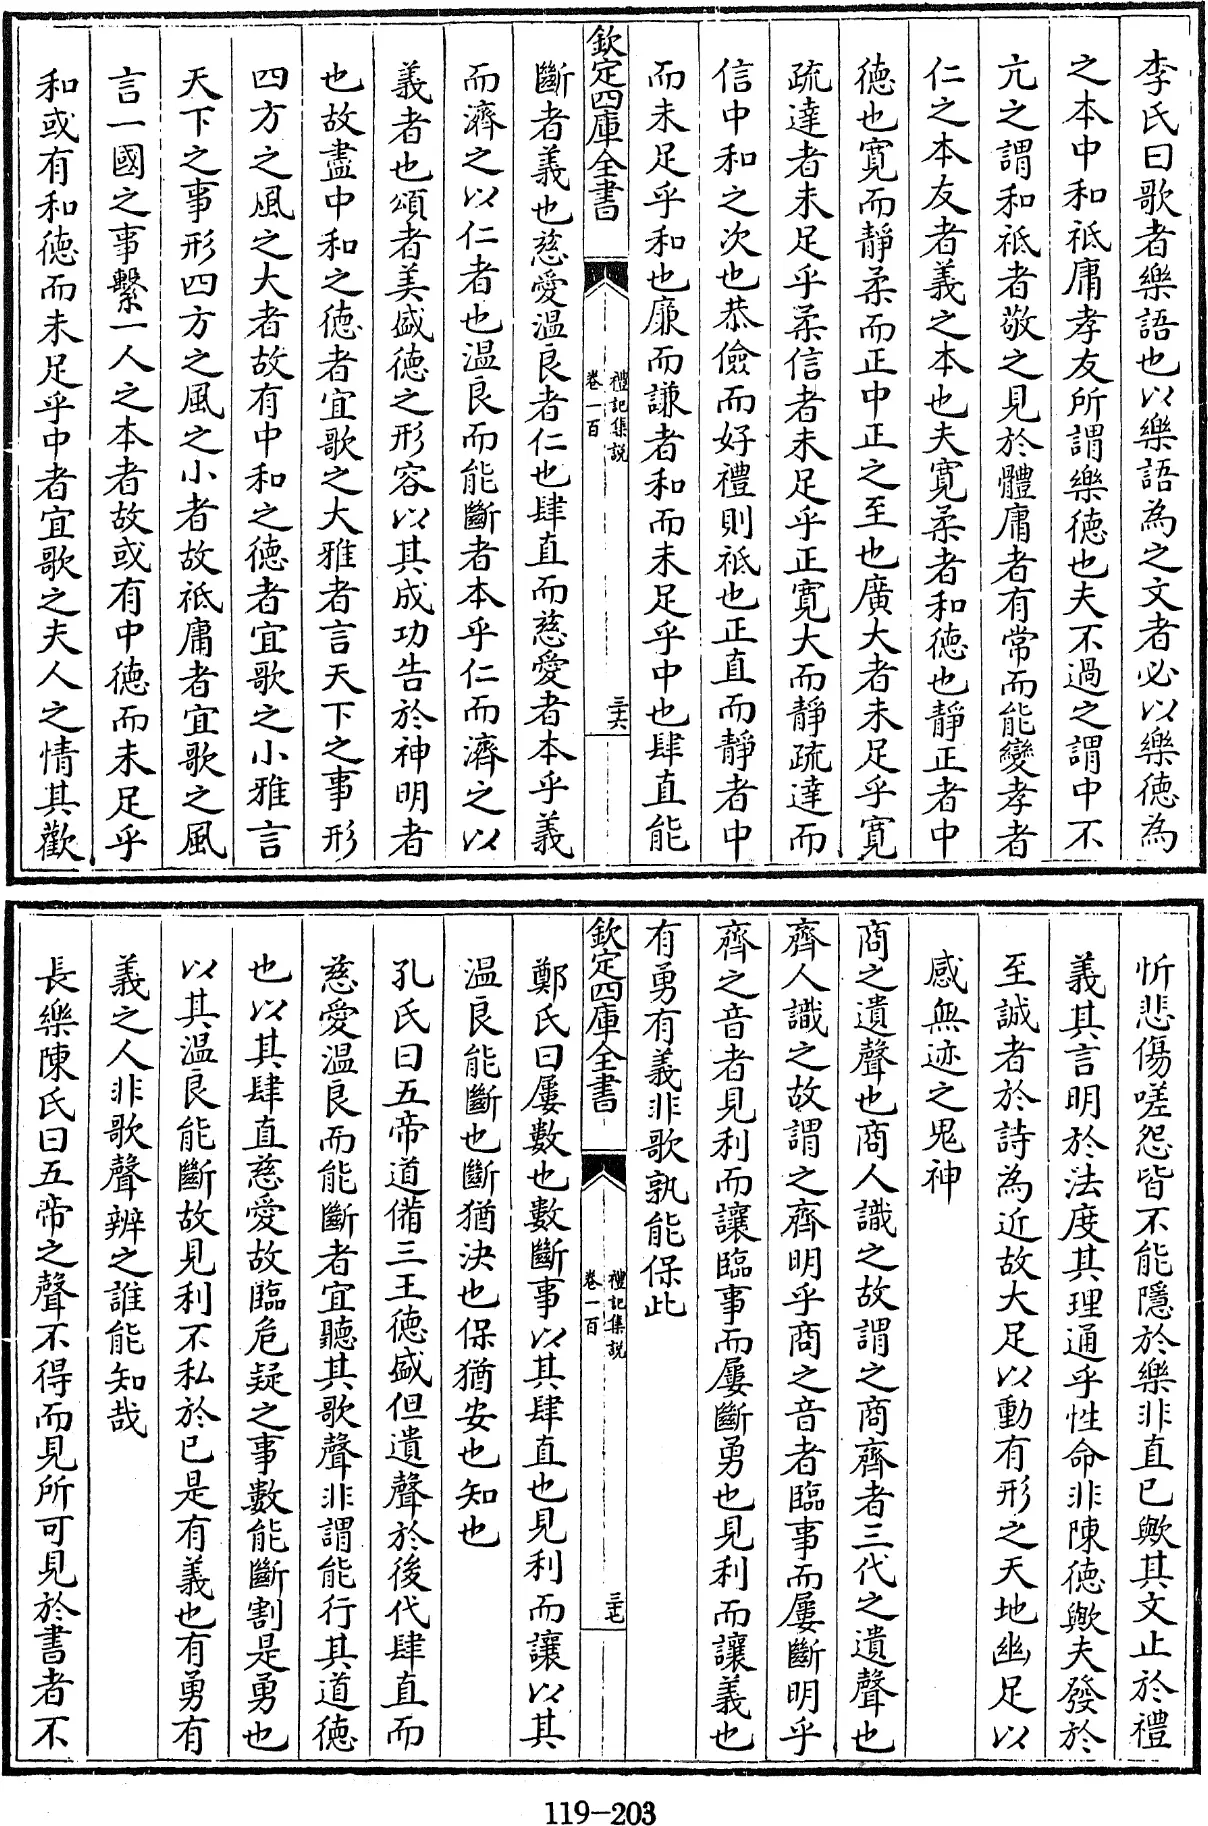 李氏曰歌者樂語也以樂語為之文者必以樂徳為
之本中和祗庸孝友所謂樂徳也夫不過之謂中不
亢之謂和祗者敬之見於體庸者有常而能變孝者
仁之本友者義之本也夫寛柔者和徳也靜正者中
徳也寛而靜柔而正中正之至也廣大者未足乎寛
疏達者未足乎柔信者未足乎正寛大而靜疏達而
信中和之次也恭儉而好禮則祗也正直而靜者中
而未足乎和也廉而謙者和而未足乎中也肆直能
欽定四庫全書
禮記集說
卷一百
三十六
斷者義也慈愛温良者仁也肆直而慈愛者本乎義
而濟之以仁者也温良而能斷者本乎仁而濟之以
義者也頌者美盛徳之形容以其成功告於神明者
也故盡中和之徳者宜歌之大雅者言天下之事形
四方之風之大者故有中和之徳者宜歌之小雅言
天下之事形四方之風之小者故祗庸者宜歌之風
言一國之事繫一人之本者故或有中徳而未足乎
和或有和徳而未足乎中者宜歌之夫人之情其歡
忻悲傷嗟怨皆不能隱於樂非直已歟其文止於禮
義其言明於法度其理通乎性命非陳徳歟夫發於
至誠者於詩為近故大足以動有形之天地幽足以
感無迹之鬼神
商之遺聲也商人識之故謂之商齊者三代之遺聲也
齊人識之故謂之齊明乎商之音者臨事而屢斷明乎
齊之音者見利而讓臨事而屢斷勇也見利而讓義也
有勇有義非歌孰能保此
欽定四庫全書
禮記集說
卷一百
三十七
鄭氏曰屢數也數斷事以其肆直也見利而讓以其
温良能斷也斷猶決也保猶安也知也
孔氏曰五帝道備三王徳盛但遺聲於後代肆直而
慈愛温良而能斷者宜聽其歌聲非謂能行其道徳
也以其肆直慈愛故臨危疑之事數能斷割是勇也
以其温良能斷故見利不私於已是有義也有勇有
義之人非歌聲辨之誰能知哉
長樂陳氏曰五帝之聲不得而見所可見於書者不
119-203